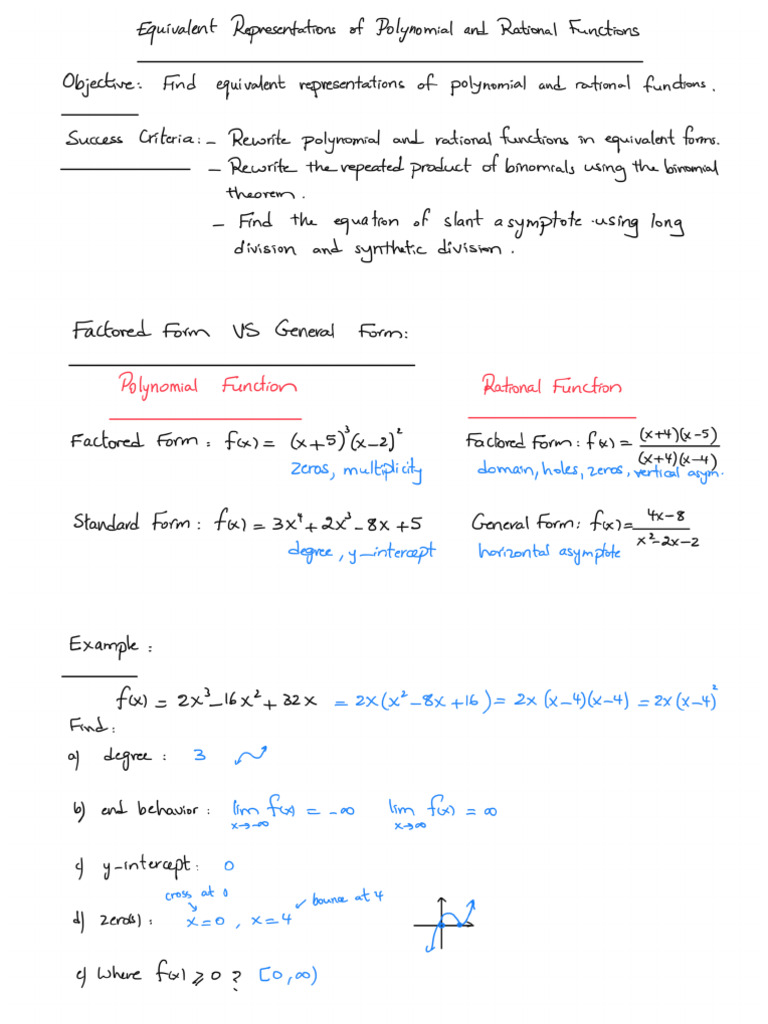 Equivalent Representations of Polynomial and Rational Functions
Objective: Find equivalent representations of polynomial and rational functions.
Success Criteria: - Rewrite polynomial and rational functions in equivalent forms.
- Rewrite the repeated product of binomials using the binomial
theorem.
- Find the equation of slant asymptote using long
division and synthetic division.
Factored Form VS General Form:
Polynomial Function
Rational Function
Factored Form: f(x) = (x+5)³(x-2)²
zeros, multiplicity
Factored Form: f(x) = (x+4)(x-5) / (x+4)(x-4)
domain, holes, zeros, vertical asym.
Standard Form: f(x) = 3x⁴ + 2x³ - 8x + 5
degree, y-intercept
General Form: f(x) = 4x-8 / x²-2x-2
horizontal asymptote
Example:
f(x) = 2x³ - 16x² + 32x = 2x(x² - 8x + 16) = 2x(x-4)(x-4) = 2x(x-4)²
Find:
a) degree: 3
b) end behavior: lim x→-∞ f(x) = -∞ lim x→∞ f(x) = ∞
c) y-intercept: 0
cross at 0
bounce at 4
d) zero(s): x=0, x=4
e) Where f(x) ≥ 0? [0, ∞)